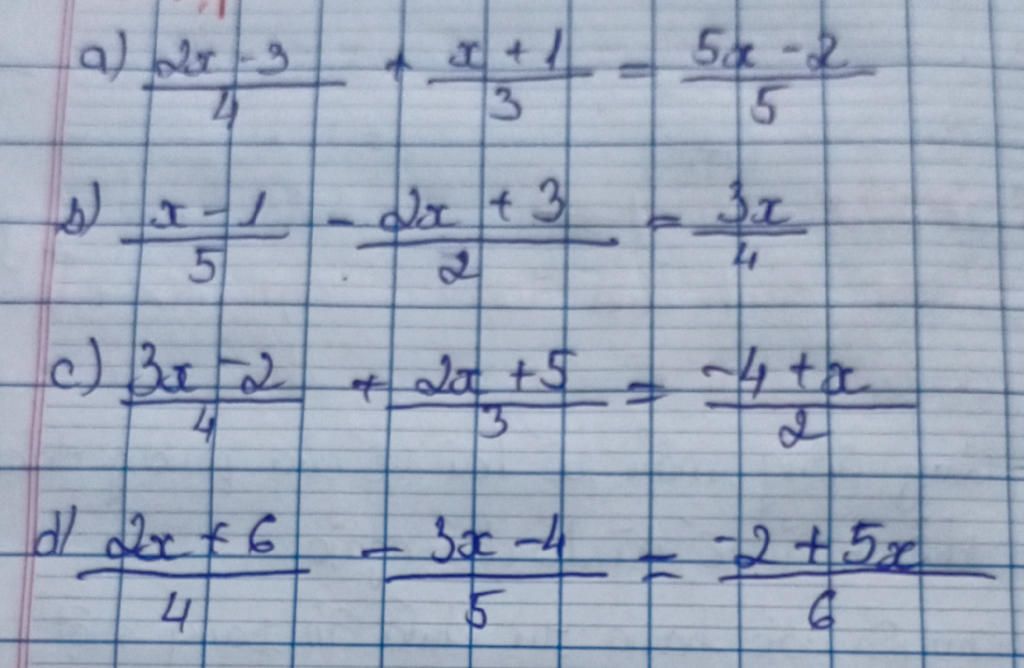 a) (2x - 3)/4 + (x + 1)/3 = (5x - 2)/5
b) (x - 1)/5 - (2x + 3)/2 = 3x/4
c) (3x - 2)/4 + (2x + 5)/3 = (-4 + x)/2
d) (2x + 6)/4 - (3x - 4)/5 = (-2 + 5x)/6